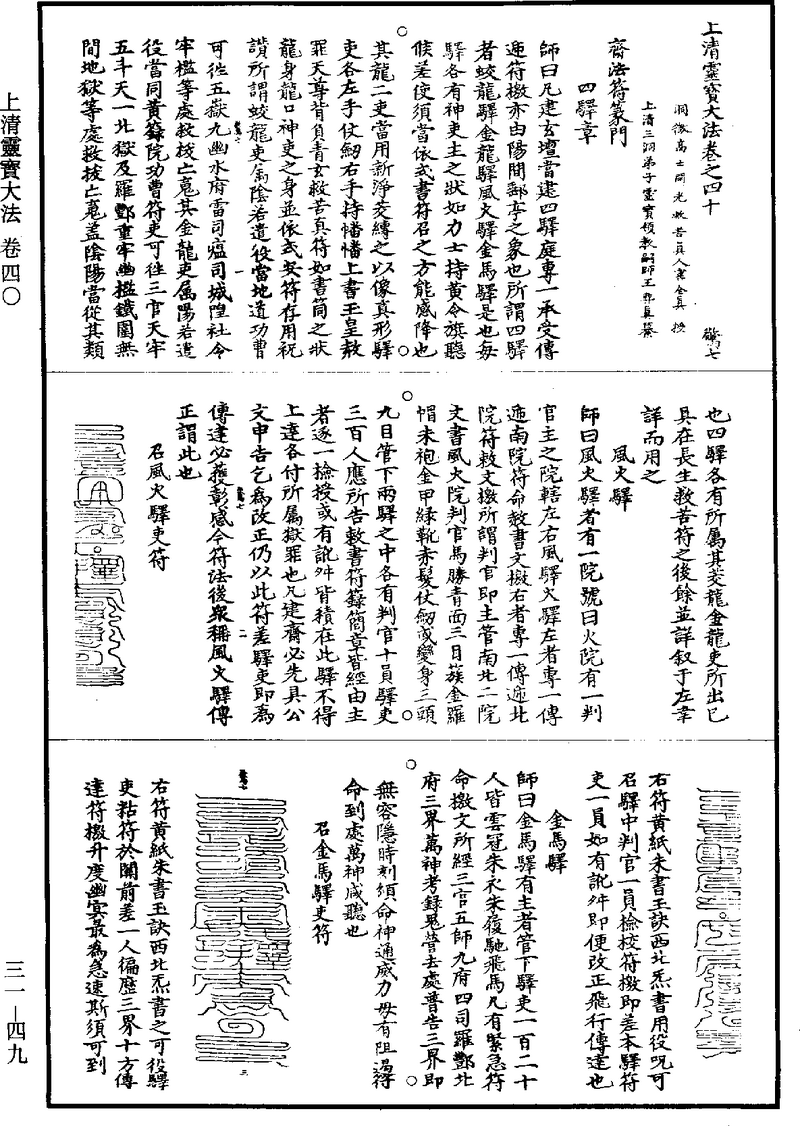 上清靈寶大法 卷四〇
三一—四九
上清靈寶大法卷之四十
洞微高士開光救苦真人甯全真授
上清三洞弟子靈寶領教嗣師王契真纂
齋法符篆門
四驛章
師曰凡建玄壇當建四驛庭專一承受傳
遞符檄亦由陽間郵亭之象也所謂四驛
者蛟龍驛金龍驛風火驛金馬驛是也每
驛各有神吏主之狀如力士持黃令旗聽
候差使須當依式書符召之方能感降也
其龍二吏當用新淨茭縛之以像真形驛
吏各左手仗劒右手持幡幡上書玉皇赦
罪天尊背負青玄救苦真符如書筒之狀
龍身龍口神吏之身並依式安符存用祝
讃所謂蛟龍吏屬陰若遣役當地道功曹
可徃五嶽九幽水府雷司瘟司城隍社令
牢檻等處救拔亡䰟其金龍吏屬陽若遣
役當同黃籙院功曹符吏可徃三官天牢
五斗天一北獄及羅酆重牢幽檻鐵圍無
間地獄等處救拔亡䰟盖陰陽當從其類
也四驛各有所屬其茭龍金龍吏所出已
具在長生救苦符之後餘並詳叙于左幸
詳而用之
風火驛
師曰風火驛者有一院號曰火院有一判
官主之院轄左右風驛火驛左者專一傳
遞南院符命赦書文檄右者專一傳遞北
院符敕文檄所謂判官即主管南北二院
文書風火院判官馬勝青面三目簇金羅
帽朱袍金甲緑靴赤髮仗劒或變身三頭
九目管下兩驛之中各有判官十員驛吏
三百人應所告敕書符籙簡章皆經由主
者逐一撿授或有訛舛皆積在此驛不得
上達各付所屬獄罪也凡建齋必先具公
文申告乞為改正仍以此符差驛吏即為
傳達必獲彰感今符法後衆稱風火驛傳
正謂此也
召風火驛吏符
右符黃紙朱書玉訣西北炁書用役呪可
召驛中判官一員檢校符檄即差本驛符
吏一員如有訛舛即便改正飛行傳達也
金馬驛
師曰金馬驛有主者管下驛吏一百二十
人皆雲冠朱衣朱履馳飛馬凡有緊急符
命檄文所經三官五師九府四司羅酆北
府三界萬神考録䰟营去處普告三界即
無容隱時刻須命神通威力毋有阻遏符
命到處萬神咸聽也
召金馬驛吏符
右符黃紙朱書玉訣西北炁書之可役驛
吏粘符於關前差一人徧歷三界十方傳
達符檄升度幽冥最為急速斯須可到